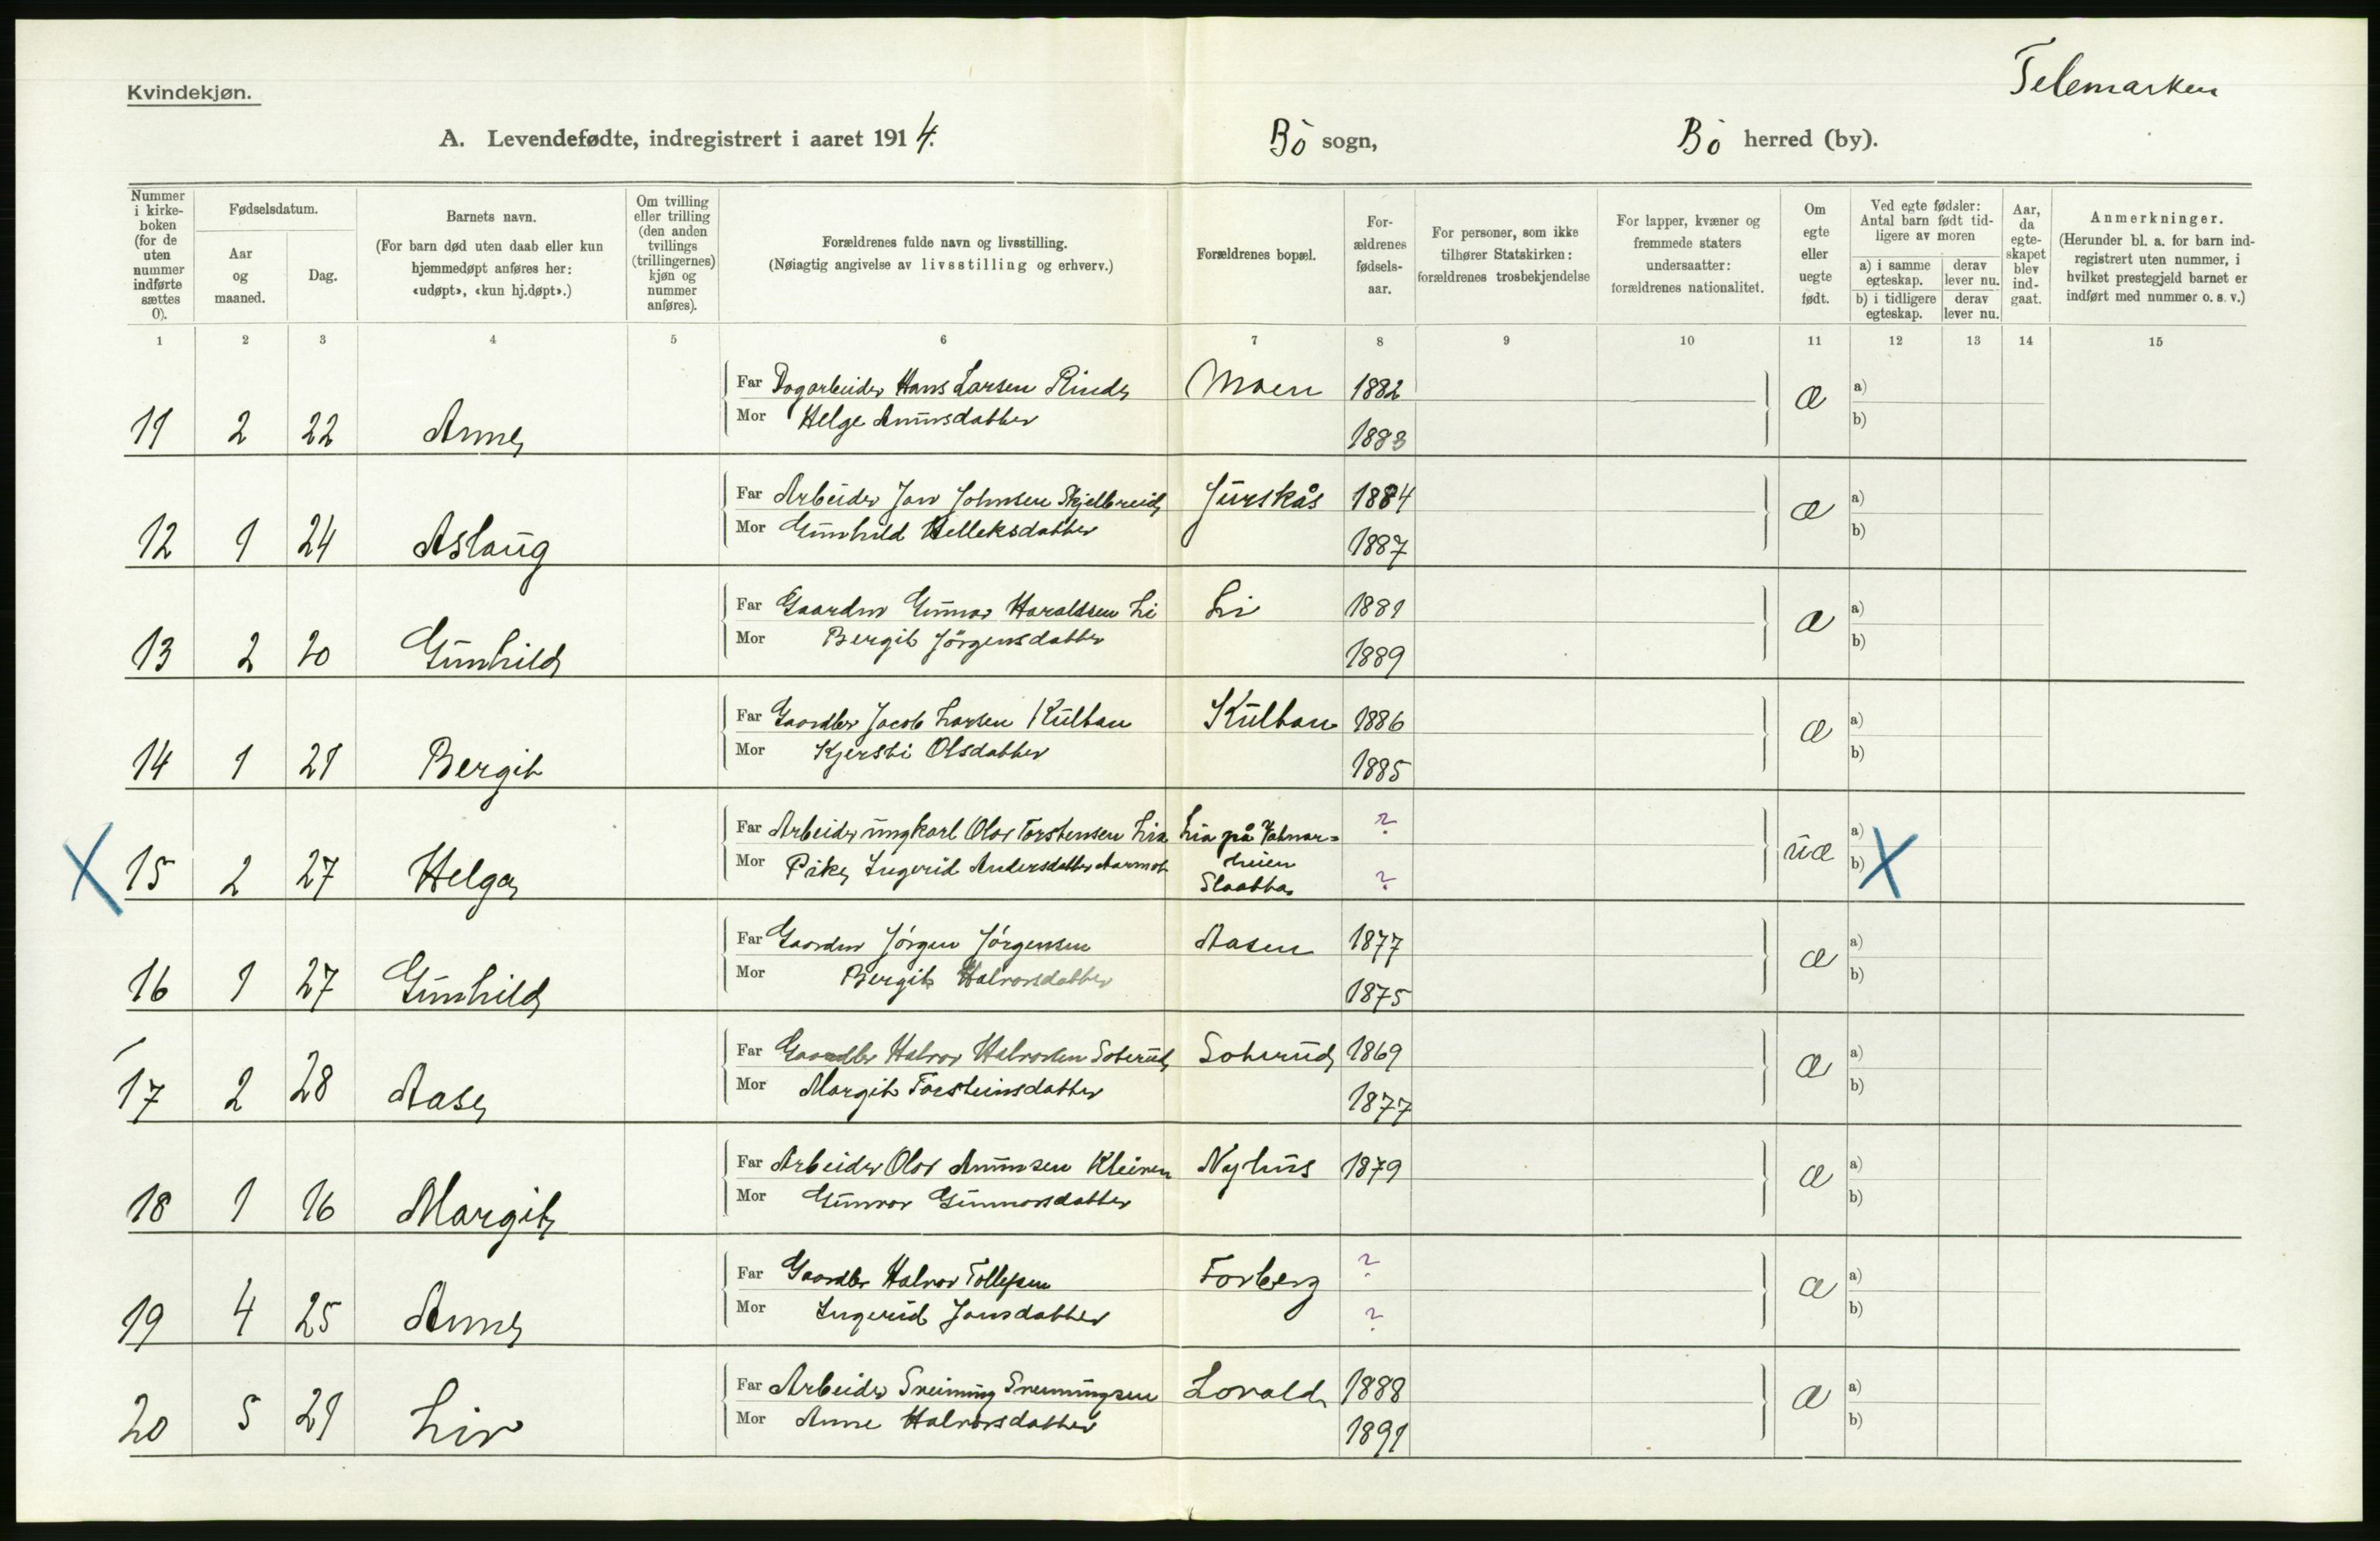 Telemarken
Kvindekjøn.
A. Levendefødte, indregistrert i aaret 1914. Bö sogn, Bö herred (by).
Nummer i kirke-boken (for de uten nummer indførte sættes 0).
Fødselsdatum.
Aar og maaned.
Dag.
Barnets navn.
(For barn død uten daab eller kun hjemmedøpt anføres her: «udøpt», «kun hj.døpt».)
Om tvilling eller trilling (den anden tvillings (trillingernes) kjøn og nummer anføres).
Forældrenes fulde navn og livsstilling.
(Nøiagtig angivelse av livsstilling og erhverv.)
Forældrenes bopæl.
For-ældrenes fødsels-aar.
For personer, som ikke tilhører Statskirken: forældrenes trosbekjendelse
For lapper, kvæner og fremmede staters undersaatter: forældrenes nationalitet.
Om egte eller uegte født.
Ved egte fødsler: Antal barn født tid-ligere av moren
a) i samme egteskap.
derav lever nu.
b) i tidligere egteskap.
derav lever nu.
Aar, da egte-skapet blev ind-gaat.
Anmerkninger.
(Herunder bl. a. for barn ind-registrert uten nummer, i hvilket prestegjeld barnet er indført med nummer o. s. v.)
1 2 3 4 5 6 7 8 9 10 11 12 13 14 15
Far Dagarbeider Hans Larsen Rinde Moen 1882 æ a)
Mor Helge b)
11 2 22 Anne 1883
Far Arbeider Jon Johnsen Skjelbreid Jurskås 1884 æ a)
Mor Gunhild Helleksdatter b)
12 1 24 Aslaug 1887
Far Gaardm Gunnar Haraldsen Li Li 1881 æ a)
Mor Bergit Jörgensdatter b)
13 2 20 Gunhild 1889
Far Gaardbr Jacob Larsen Kultan Kultan 1886 æ a)
Mor Kjersti Olsdatter b)
14 1 21 Bergit 1885
Far Arbeider ungkarl Olav Torstensen Lia Lia på ? uæ a)
Mor Pike Ingerid Andersdatter b)
X 15 2 27 Helga ? X
Far Gaardm Jörgen Jörgensen Aasen 1877 æ a)
Mor Bergit Halvorsdatter b)
16 1 27 Gunhild 1875
Far Gaardbr Halvor Halvorsen Soterud Soterud 1869 æ a)
Mor Margit Torsteinsdatter b)
17 2 28 Aase 1877
Far Arbeider Olav Kleiven Nyhus 1879 æ a)
Mor Gunvor Gunnarsdatter b)
18 1 16 Margit
Far Gaardbr Halvor Tollefsen Forberg ? æ a)
Mor Ingerid Jonsdatter ? b)
19 4 25 Anne
Far Arbeider Sveinung Sveinungsen Lovald 1888 æ a)
Mor Anne Halvorsdatter b)
20 5 21 Liv 1891